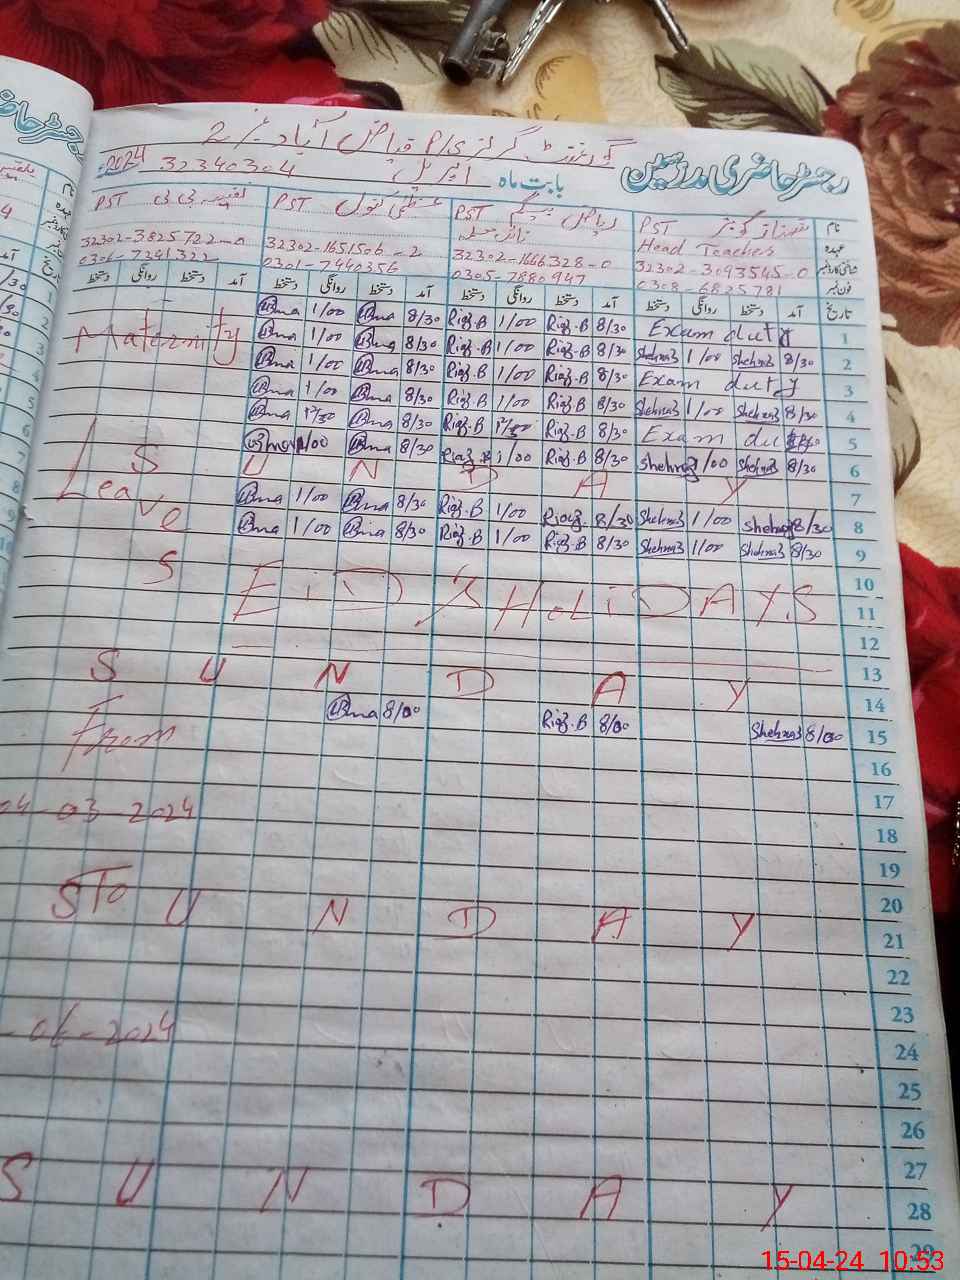 گورنمنٹ گرلز P/S فیاض آباد نمبر 2
رجسٹر حاضری مدرسین
بابت ماہ اپریل 32340304 2024
نام شہناز کوثر
عہدہ PST Head Teacher
شناختی کارڈ نمبر 32302-3093545-0
فون نمبر 0308-6825781
ریاض بیگم
PST
32302-1666328-0
0305-7880947
عظمیٰ بتول
PST
32302-1651506-2
0301-7440356
PST
32302-3825722-0
0306-7241322
تاریخ آمد دستخط روانگی دستخط آمد دستخط روانگی دستخط آمد دستخط روانگی دستخط آمد دستخط روانگی دستخط
1 Exam duty 8/30 Riaz.B 1/00 Riaz.B 8/30 1/00
2 8/30 Shehnaz 1/00 Shehnaz 8/30 Riaz.B 1/00 Riaz.B 8/30 1/00
3 Exam duty 8/30 Riaz.B 1/00 Riaz.B 8/30 1/00
4 8/30 Shehnaz 1/00 Shehnaz 8/30 Riaz.B 1/00 Riaz.B 8/30 1/00
5 Exam duty 8/30 Riaz.B Riaz.B 8/30
6 8/30 Shehnaz 1/00 Shehnaz 8/30 Riaz.B 1/00 Riaz.B 8/30 1/00
7 SUNDAY
8 8/30 Shehnaz 1/00 Shehnaz 8/30 Riaz.B 1/00 Riaz.B 8/30 1/00
9 8/30 Shehnaz 1/00 Shehnaz 8/30 Riaz.B 1/00 Riaz.B 8/30 1/00
10
11 EiD,S HoLiDAYS
12
13
14 SUNDAY
15 8/00 Shehnaz 8/00 Riaz.B 8/00
16
17
18
19
20
21 SUNDAY
22
23
24
25
26
27
28 SUNDAY
29
Maternity
Leave
From
04-03-2024
To
2024
15-04-24 10:53